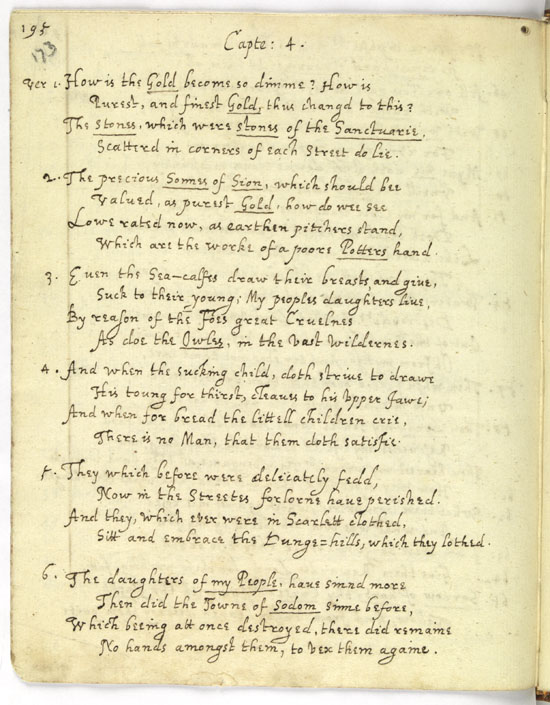 195
173
Capte: 4.
Ver 1. How is the Gold become so dimme? How is
Purest, and finest Gold, thus changd to this?
The Stones, which were stones of the Sanctuarie,
Scatterd in corners of each Street do lie.
2. The precious Sonnes of Sion, which should bee
Valued, as purest Gold, how do wee see
Lowe rated now, as earthen pitchers stand,
Which are the worke of a poore Potters hand.
3. Euen the Sea-calfes draw their breasts, and giue,
Suck to their young; My peoples daughters liue,
By reason of the Foes great Cruelnes
As doe the Owles, in the vast Wildernes.
4. And when the sucking child, doth striue to drawe
His toung for thirst, cleaues to his Vpper Jawe;
And when for bread the littell children crie,
There is no Man, that them doth satisfie.
5. They which before were delicately fedd,
Now in the Streetes forlorne haue perished.
And they, which ever were in Scarlett clothed,
Sitt and embrace the Dunge=hills, which they lothed.
6. The daughters of my People, haue sinnd more
Then did the Towne of Sodom sinne before,
Which beeing att once destroyed, there did remaine
No hands amongst them, to vex them againe.